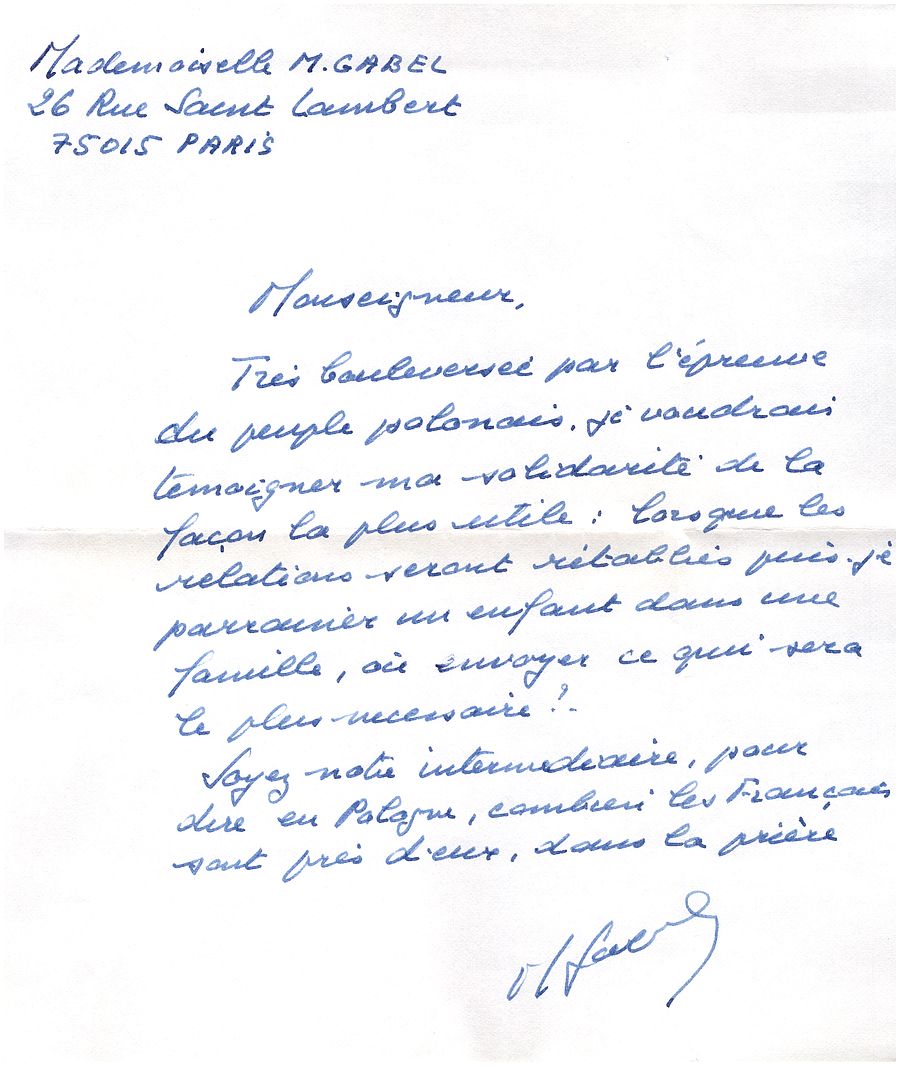 Mademoiselle M. GABEL
26 Rue Saint Lambert
75015 PARIS
Monseigneur,
Très bouleversée par l'épreuve
du peuple polonais, je voudrais
témoigner ma solidarité de la
façon la plus utile : lorsque les
relations seront rétablies puis-je
parrainer un enfant dans une
famille, où envoyer ce qui sera
le plus nécessaire ?
Soyez notre intermédiaire, pour
dire en Pologne, combien les Français
sont près d'eux, dans la prière
M Gabel